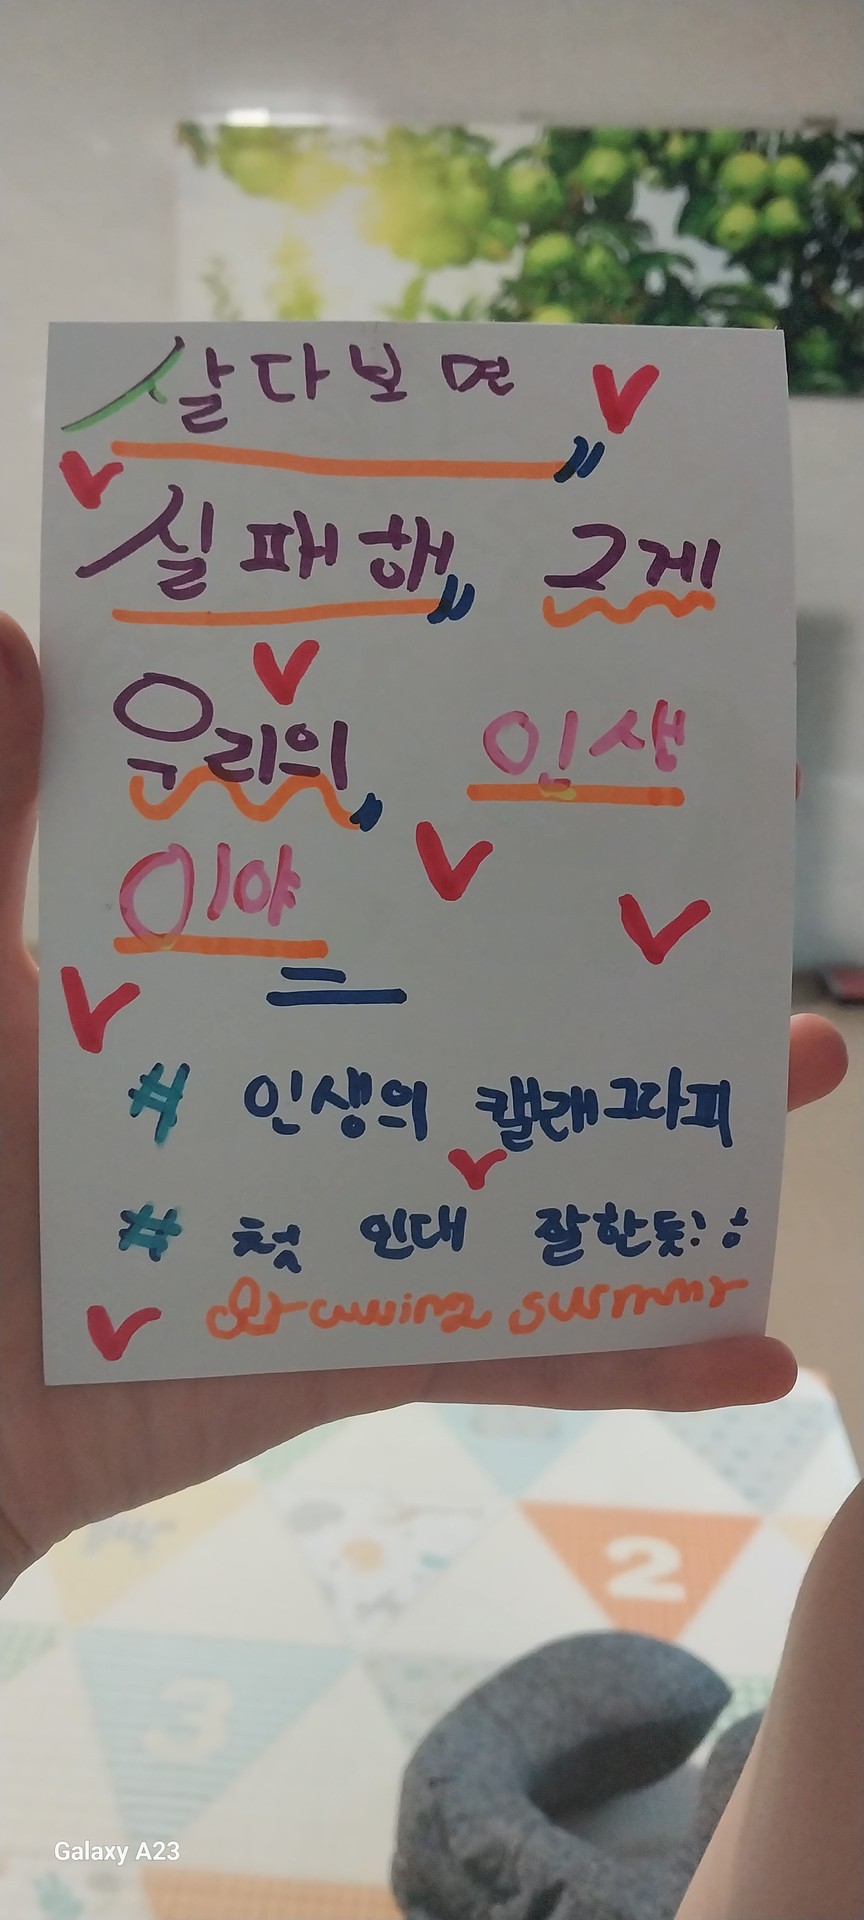 살다보면
실패해 그게
우리의 인생
이야
# 인생의 캘래그라피
# 첫 인대 잘한듯!
Drawing summr
2
3
Galaxy A23